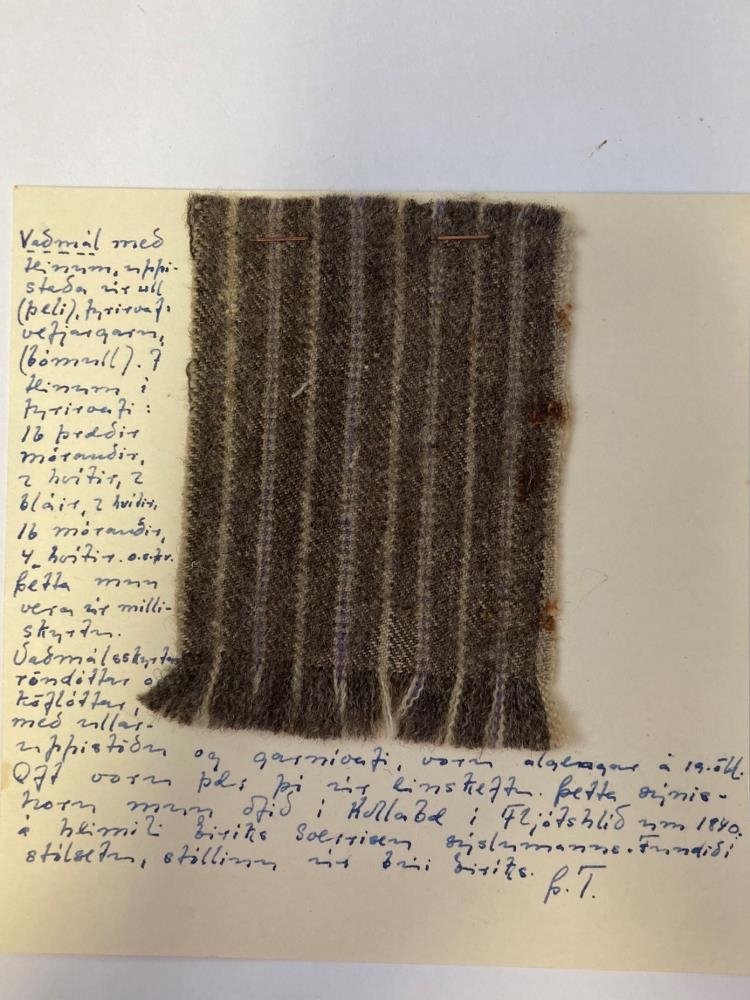 Vaðmál með
teinum, uppi-
staða úr ull
(þeli), fyrirvaf:
vefjargarn,
(bómull). 7
teinum í
fyrirvafi:
16 þræðir
mórauðir,
2 hvítir, 2
bláir, 2 hvítir,
16 mórauðir,
4 hvítir o.s.frv.
Þetta mun
vera úr milli-
skyrtu.
Vaðmálsskyrtur
röndóttar o
köflóttar,
með ullar-
uppistöðu og garnívafi, voru algengar á 19. öld.
Oft voru þær þó úr einskeftu. Þetta sýnis-
horn mun ofið í Kollabæ í Fljótshlíð um 1840.
á heimili Eiríks Sverrisen sýslumanns. Fundið í
stólsetu, stóllinn úr búi Eiríks.
Þ.T.